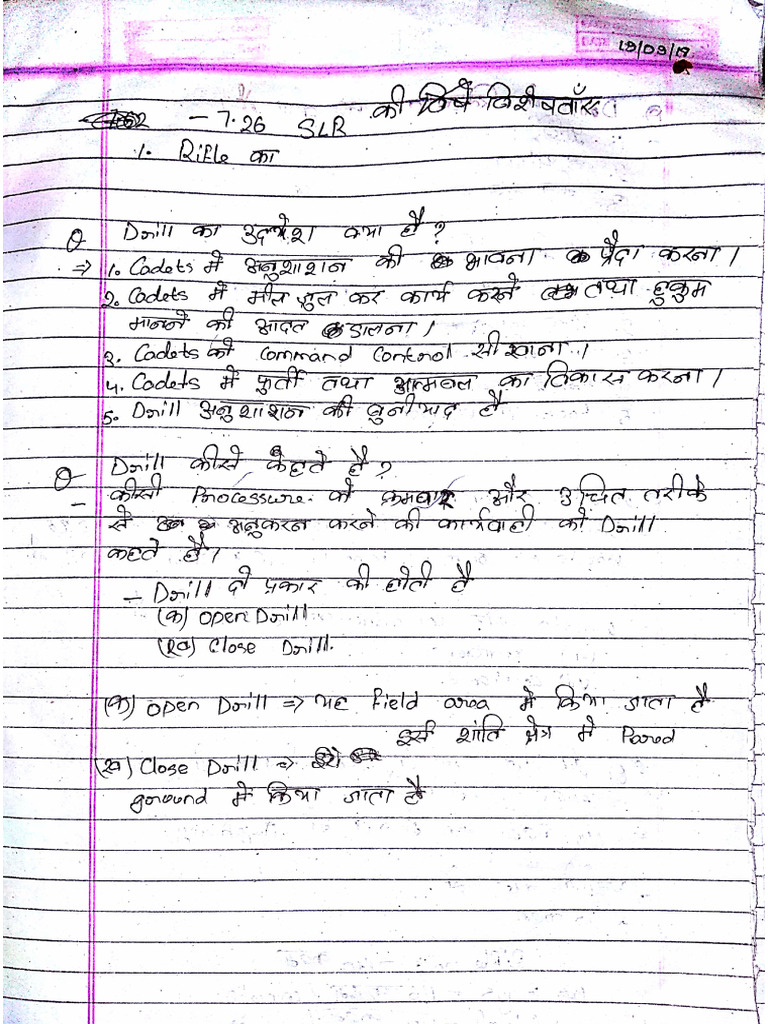 19/09/19
- 7.26 SLR की विशेषताँए
1. Rifle का
Q Drill का उद्देश क्या है?
⇒ 1. Cadets में अनुशाशन की भावना पैदा करना।
2. Cadets में मील जुल कर कार्य करने तथा हुकुम
मानने की आदत डालना।
3. Cadets को Command Control सीखाना।
4. Cadets में फुर्ती तथा आत्मबल का विकास करना।
5. Drill अनुशाशन की बुनीयाद है
Q Drill कीसे कहते है?
- कीसी Processure को क्रमवार और उचित तरीके
से अनुकरन करने की कार्यवाही को Drill
कहते है।
- Drill दो प्रकार की होती है
(क) open Drill
(ख) Close Drill.
(क) open Drill ⇒ यह Field area में किया जाता है
(ख) Close Drill ⇒ इसे शांति क्षेत्र मे Parod
ground में किया जाता है